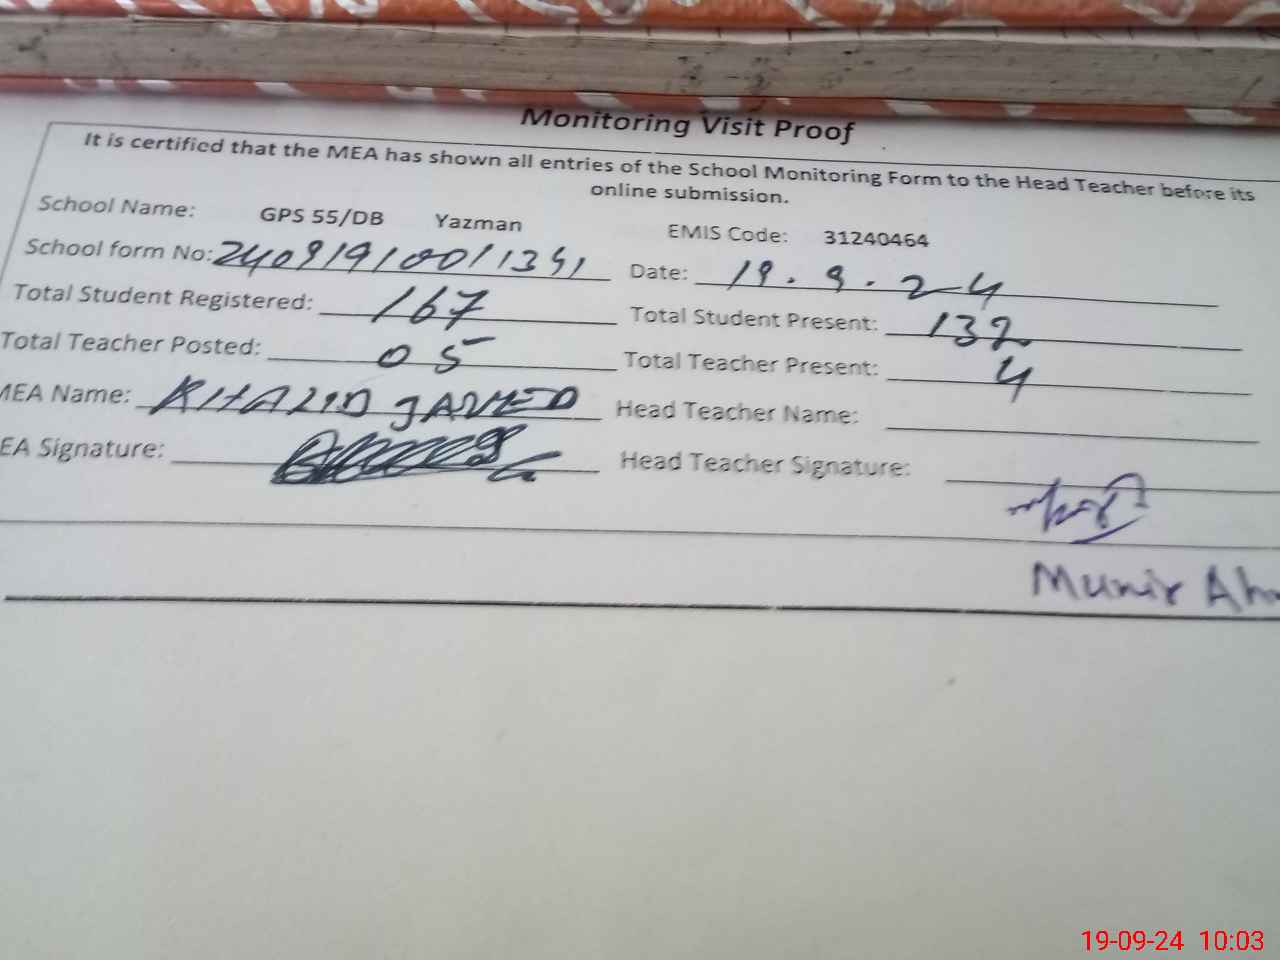 Monitoring Visit Proof
It is certified that the MEA has shown all entries of the School Monitoring Form to the Head Teacher before its
online submission.
School Name: GPS 55/DB Yazman EMIS Code: 31240464
School form No: 24091910011391 Date: 19.9.24
Total Student Registered: 167 Total Student Present: 132
Total Teacher Posted: 05 Total Teacher Present: 4
MEA Name: KHALID JAVED Head Teacher Name:
EA Signature: Head Teacher Signature:
Munir Ah
19-09-24 10:03